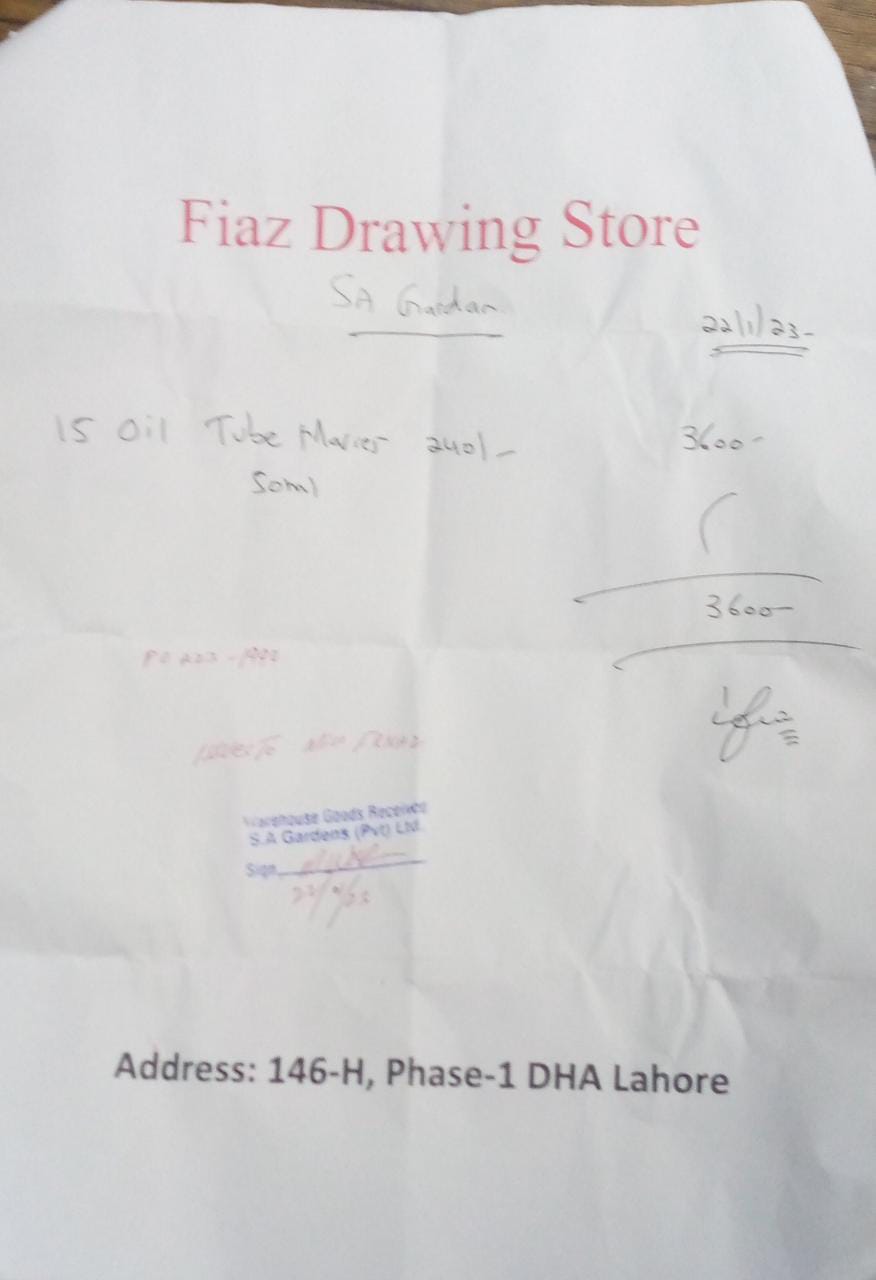 Fiaz Drawing Store
SA Gardan
22/1/23-
15 Oil Tube Maries 240/- 3600-
50ml
3600-
Warehouse Goods Received
S.A Gardens (Pvt) Ltd.
Sign
Address: 146-H, Phase-1 DHA Lahore